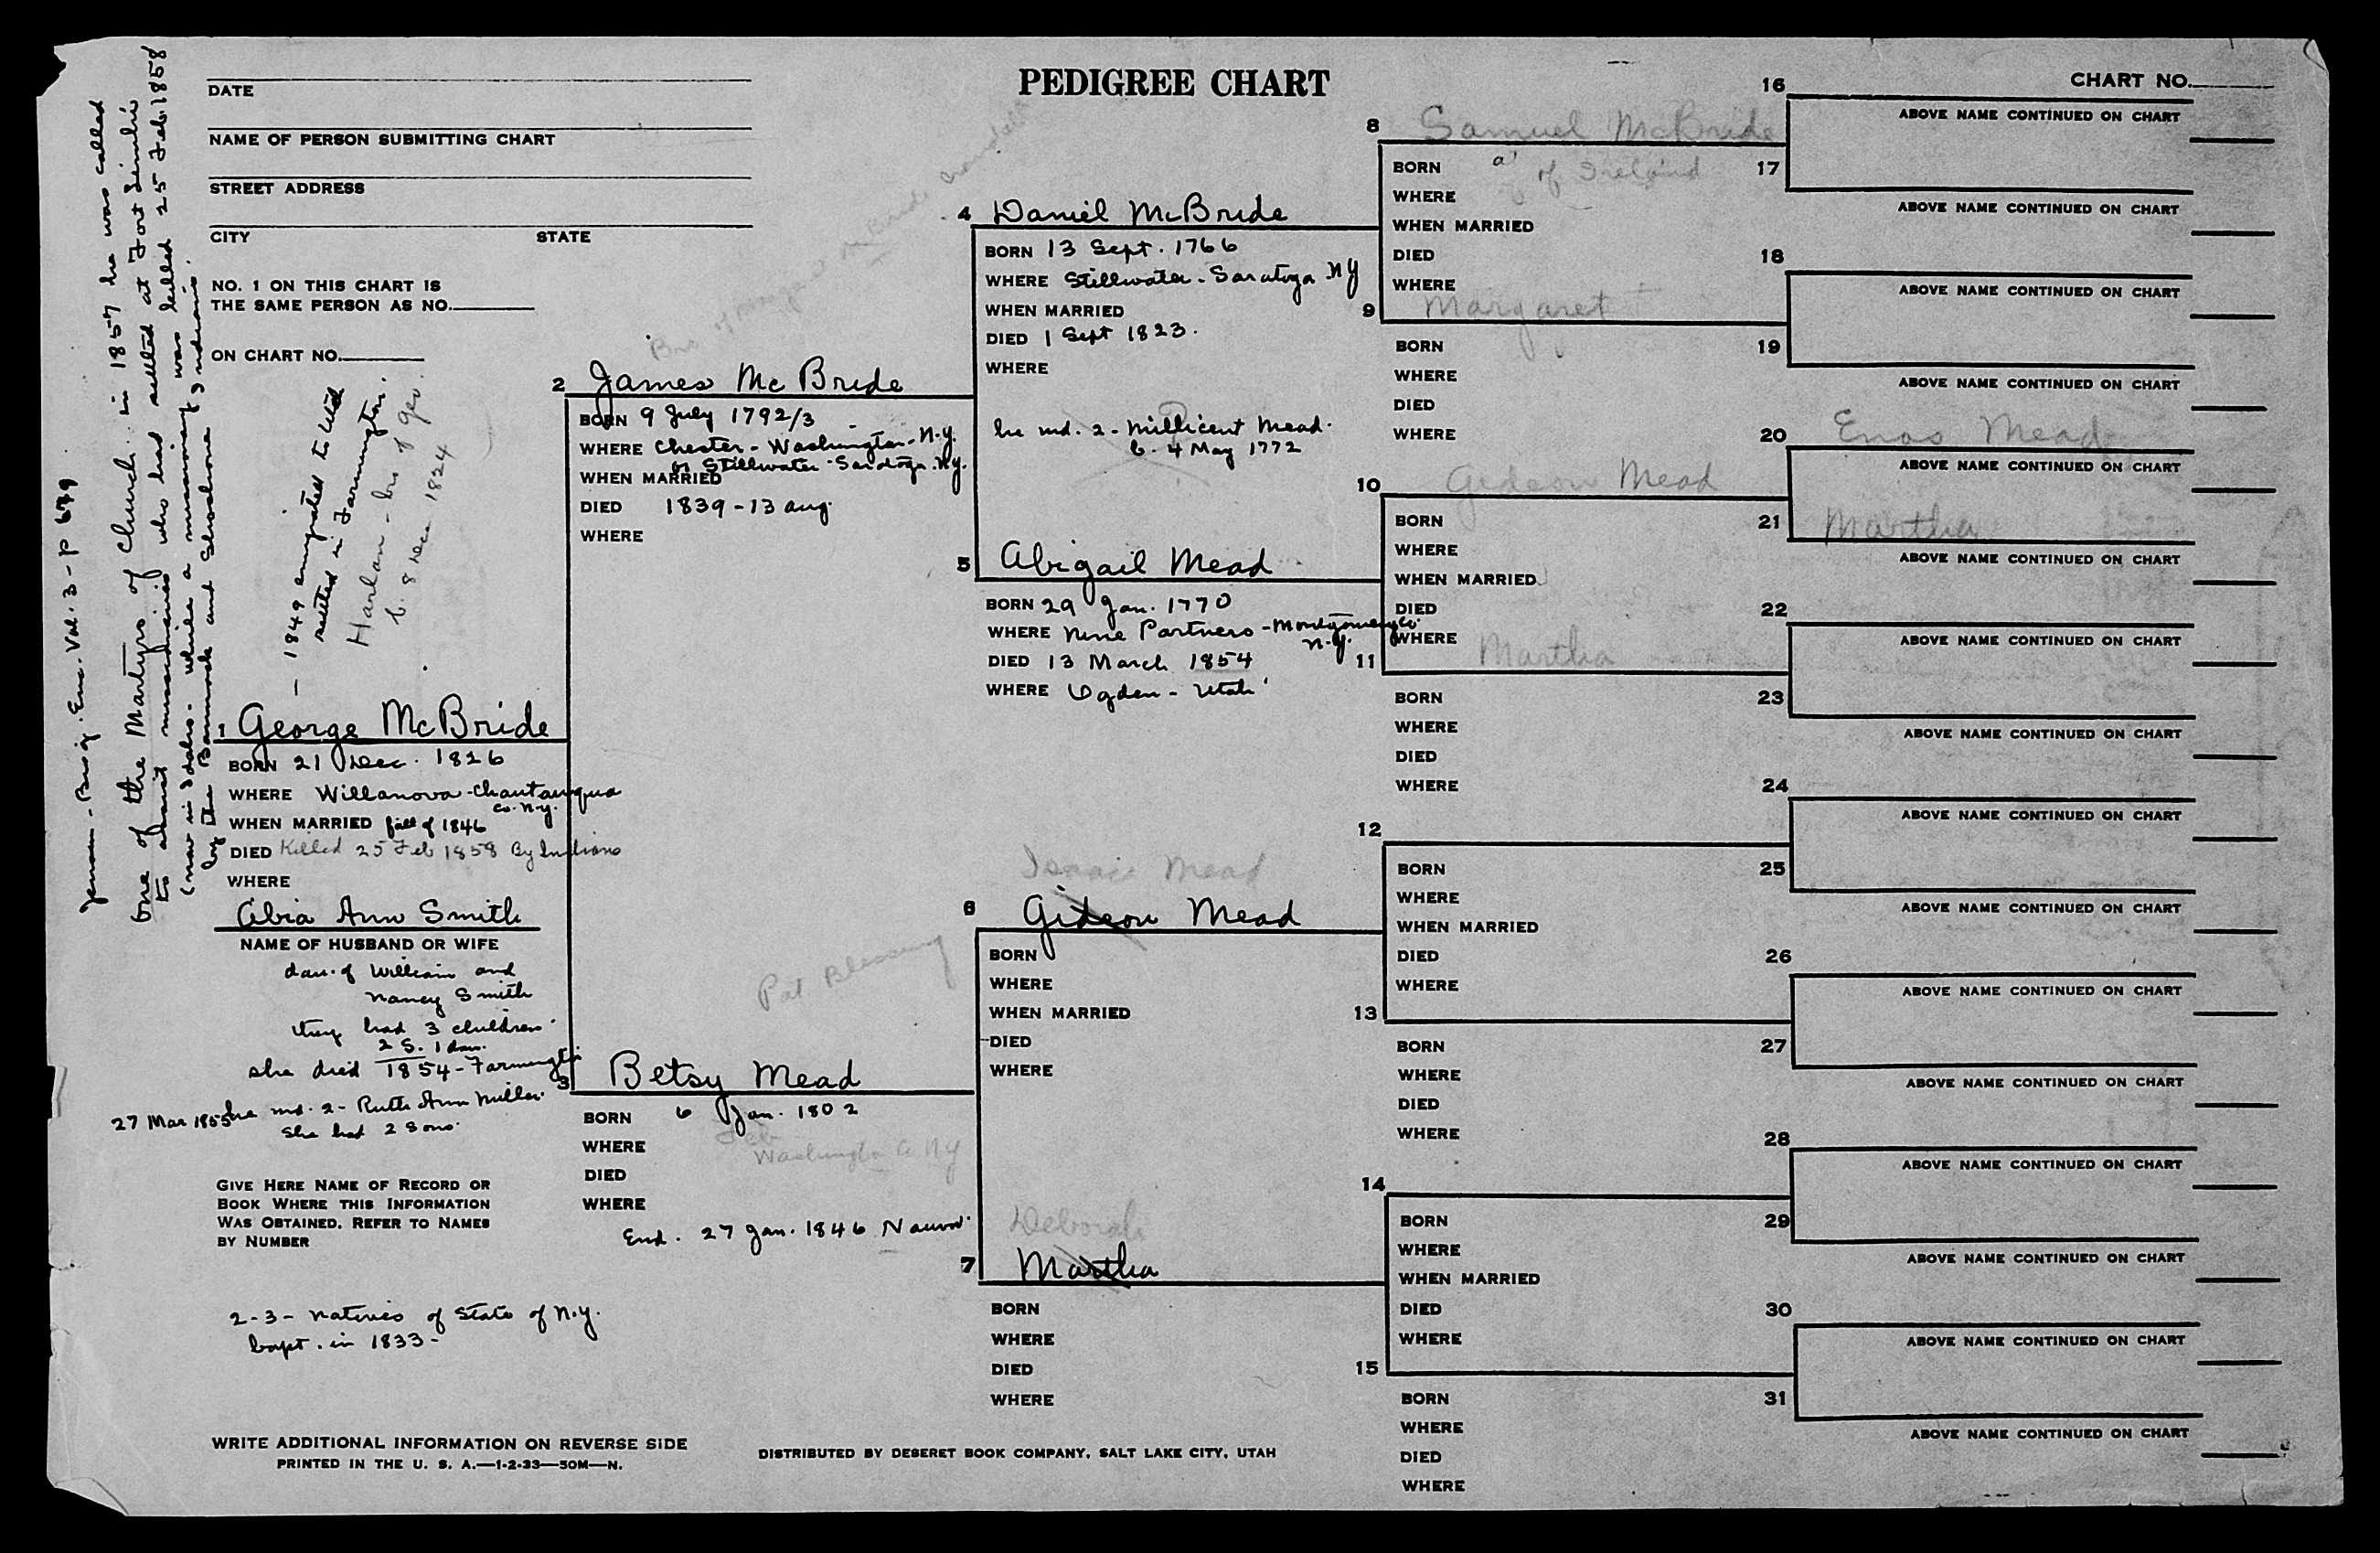 PEDIGREE CHART
CHART NO.
DATE
NAME OF PERSON SUBMITTING CHART
STREET ADDRESS
CITY STATE
NO. 1 ON THIS CHART IS
THE SAME PERSON AS NO.
ON CHART NO.
Jenson - Biog. Enc. Vol. 3 - P 679
One of the Martyrs of Church. in 1857 he was called
to assist missionaries who had settled at Fort Limhi
(now in Idaho - while a missionary was killed 25 Feb. 1858
by the Bannock and Shoshone Indians.
- 1849 emigrated to Utah
settled in Farmington.
Harlan - bro of Geo.
b. 8 Dec 1824
1 George McBride
BORN 21 Dec. 1826
WHERE Willanova - Chautauqua
co. N.Y.
WHEN MARRIED fall of 1846
DIED Killed 25 Feb 1858 By Indians
WHERE
Abia Ann Smith
NAME OF HUSBAND OR WIFE
dau. of William and
Nancy Smith
they had 3 children
2 S. 1 dau.
she died 1854 - Farmington
27 Mar 1855 he md. 2 - Ruth Ann Miller.
She had 2 sons.
GIVE HERE NAME OF RECORD OR
BOOK WHERE THIS INFORMATION
WAS OBTAINED. REFER TO NAMES
BY NUMBER
2-3- natives of State of N.Y.
bapt. in 1833-
WRITE ADDITIONAL INFORMATION ON REVERSE SIDE
PRINTED IN THE U. S. A.—1-2-33—50M—N.
DISTRIBUTED BY DESERET BOOK COMPANY, SALT LAKE CITY, UTAH
Bro of McBride
2 James Mc Bride
BORN 9 July 1792/3
WHERE Chester - Washington - N.Y.
or Stillwater - Saratoga. N.Y.
WHEN MARRIED
DIED 1839 - 13 Aug.
WHERE
Pat Blessing
3 Betsy Mead
BORN 6 Jan. 1802
Feb
WHERE Washington Co NY
DIED
WHERE
End. 27 Jan. 1846 Nauvoo.
4 Daniel McBride
BORN 13 Sept. 1766
WHERE Stillwater - Saratoga NY
WHEN MARRIED
DIED 1 Sept 1823.
WHERE
he md. 2 - Millicent Mead.
b. 4 May 1772
5 Abigail Mead
BORN 29 Jan. 1770
WHERE Nine Partners - Montgomery Co.
N.Y.
DIED 13 March 1854
WHERE Ogden - Utah
Isaac Mead
6 Gideon Mead
BORN
WHERE
WHEN MARRIED
DIED
WHERE
Deborah
7 Martha
BORN
WHERE
DIED
WHERE
8 Samuel McBride
BORN
of Ireland
WHERE
WHEN MARRIED
DIED
WHERE
9 Margaret
BORN
WHERE
DIED
WHERE
10 Gideon Mead
BORN
WHERE
WHEN MARRIED
DIED
WHERE
11 Martha
BORN
WHERE
DIED
WHERE
12
BORN
WHERE
WHEN MARRIED
DIED
WHERE
13
BORN
WHERE
DIED
WHERE
14
BORN
WHERE
WHEN MARRIED
DIED
WHERE
15
BORN
WHERE
DIED
WHERE
16
ABOVE NAME CONTINUED ON CHART
17
ABOVE NAME CONTINUED ON CHART
18
ABOVE NAME CONTINUED ON CHART
19
ABOVE NAME CONTINUED ON CHART
20 Enos Mead
ABOVE NAME CONTINUED ON CHART
21 Martha
ABOVE NAME CONTINUED ON CHART
22
ABOVE NAME CONTINUED ON CHART
23
ABOVE NAME CONTINUED ON CHART
24
ABOVE NAME CONTINUED ON CHART
25
ABOVE NAME CONTINUED ON CHART
26
ABOVE NAME CONTINUED ON CHART
27
ABOVE NAME CONTINUED ON CHART
28
ABOVE NAME CONTINUED ON CHART
29
ABOVE NAME CONTINUED ON CHART
30
ABOVE NAME CONTINUED ON CHART
31
ABOVE NAME CONTINUED ON CHART